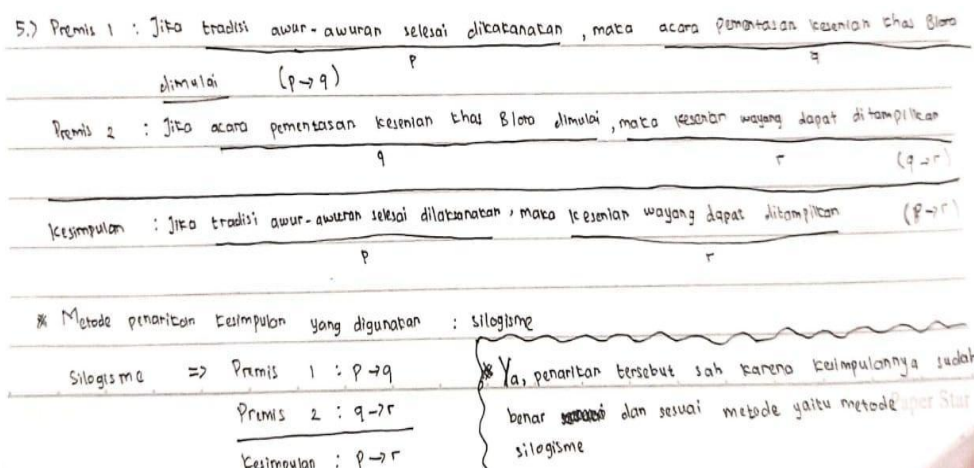 5.) Premis 1 : Jika tradisi awur-awuran selesai dilakanakan, maka acara pementasan kesenian khas Blora
p
q
dimulai (p→q)
Premis 2 : Jika acara pementasan kesenian khas Blora dimulai, maka kesenian wayang dapat ditampilkan
q
r (q→r)
Kesimpulan : Jika tradisi awur-awuran selesai dilaksanakan, maka kesenian wayang dapat ditampilkan (p→r)
p
r
* Metode penarikan kesimpulan yang digunakan : silogisme
Silogisme => Premis 1 : p→q
Premis 2 : q→r
Kesimpulan : p→r
* Ya, penarikan tersebut sah karena kesimpulannya sudah
benar dan sesuai metode yaitu metode
silogisme